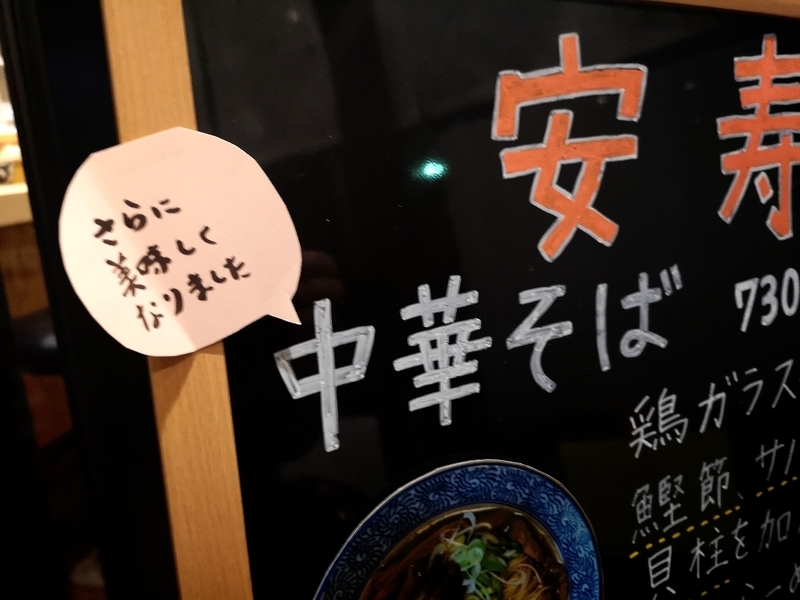 さらに
美味しく
なりました
安寿
中華そば 730
鶏ガラス
鰹節、サバ
貝柱を加